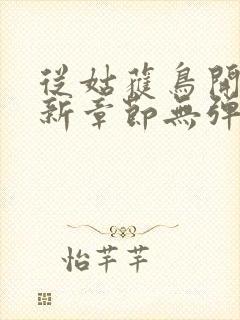 從姑蘿鳥開
新章節無彈
怡芊芊